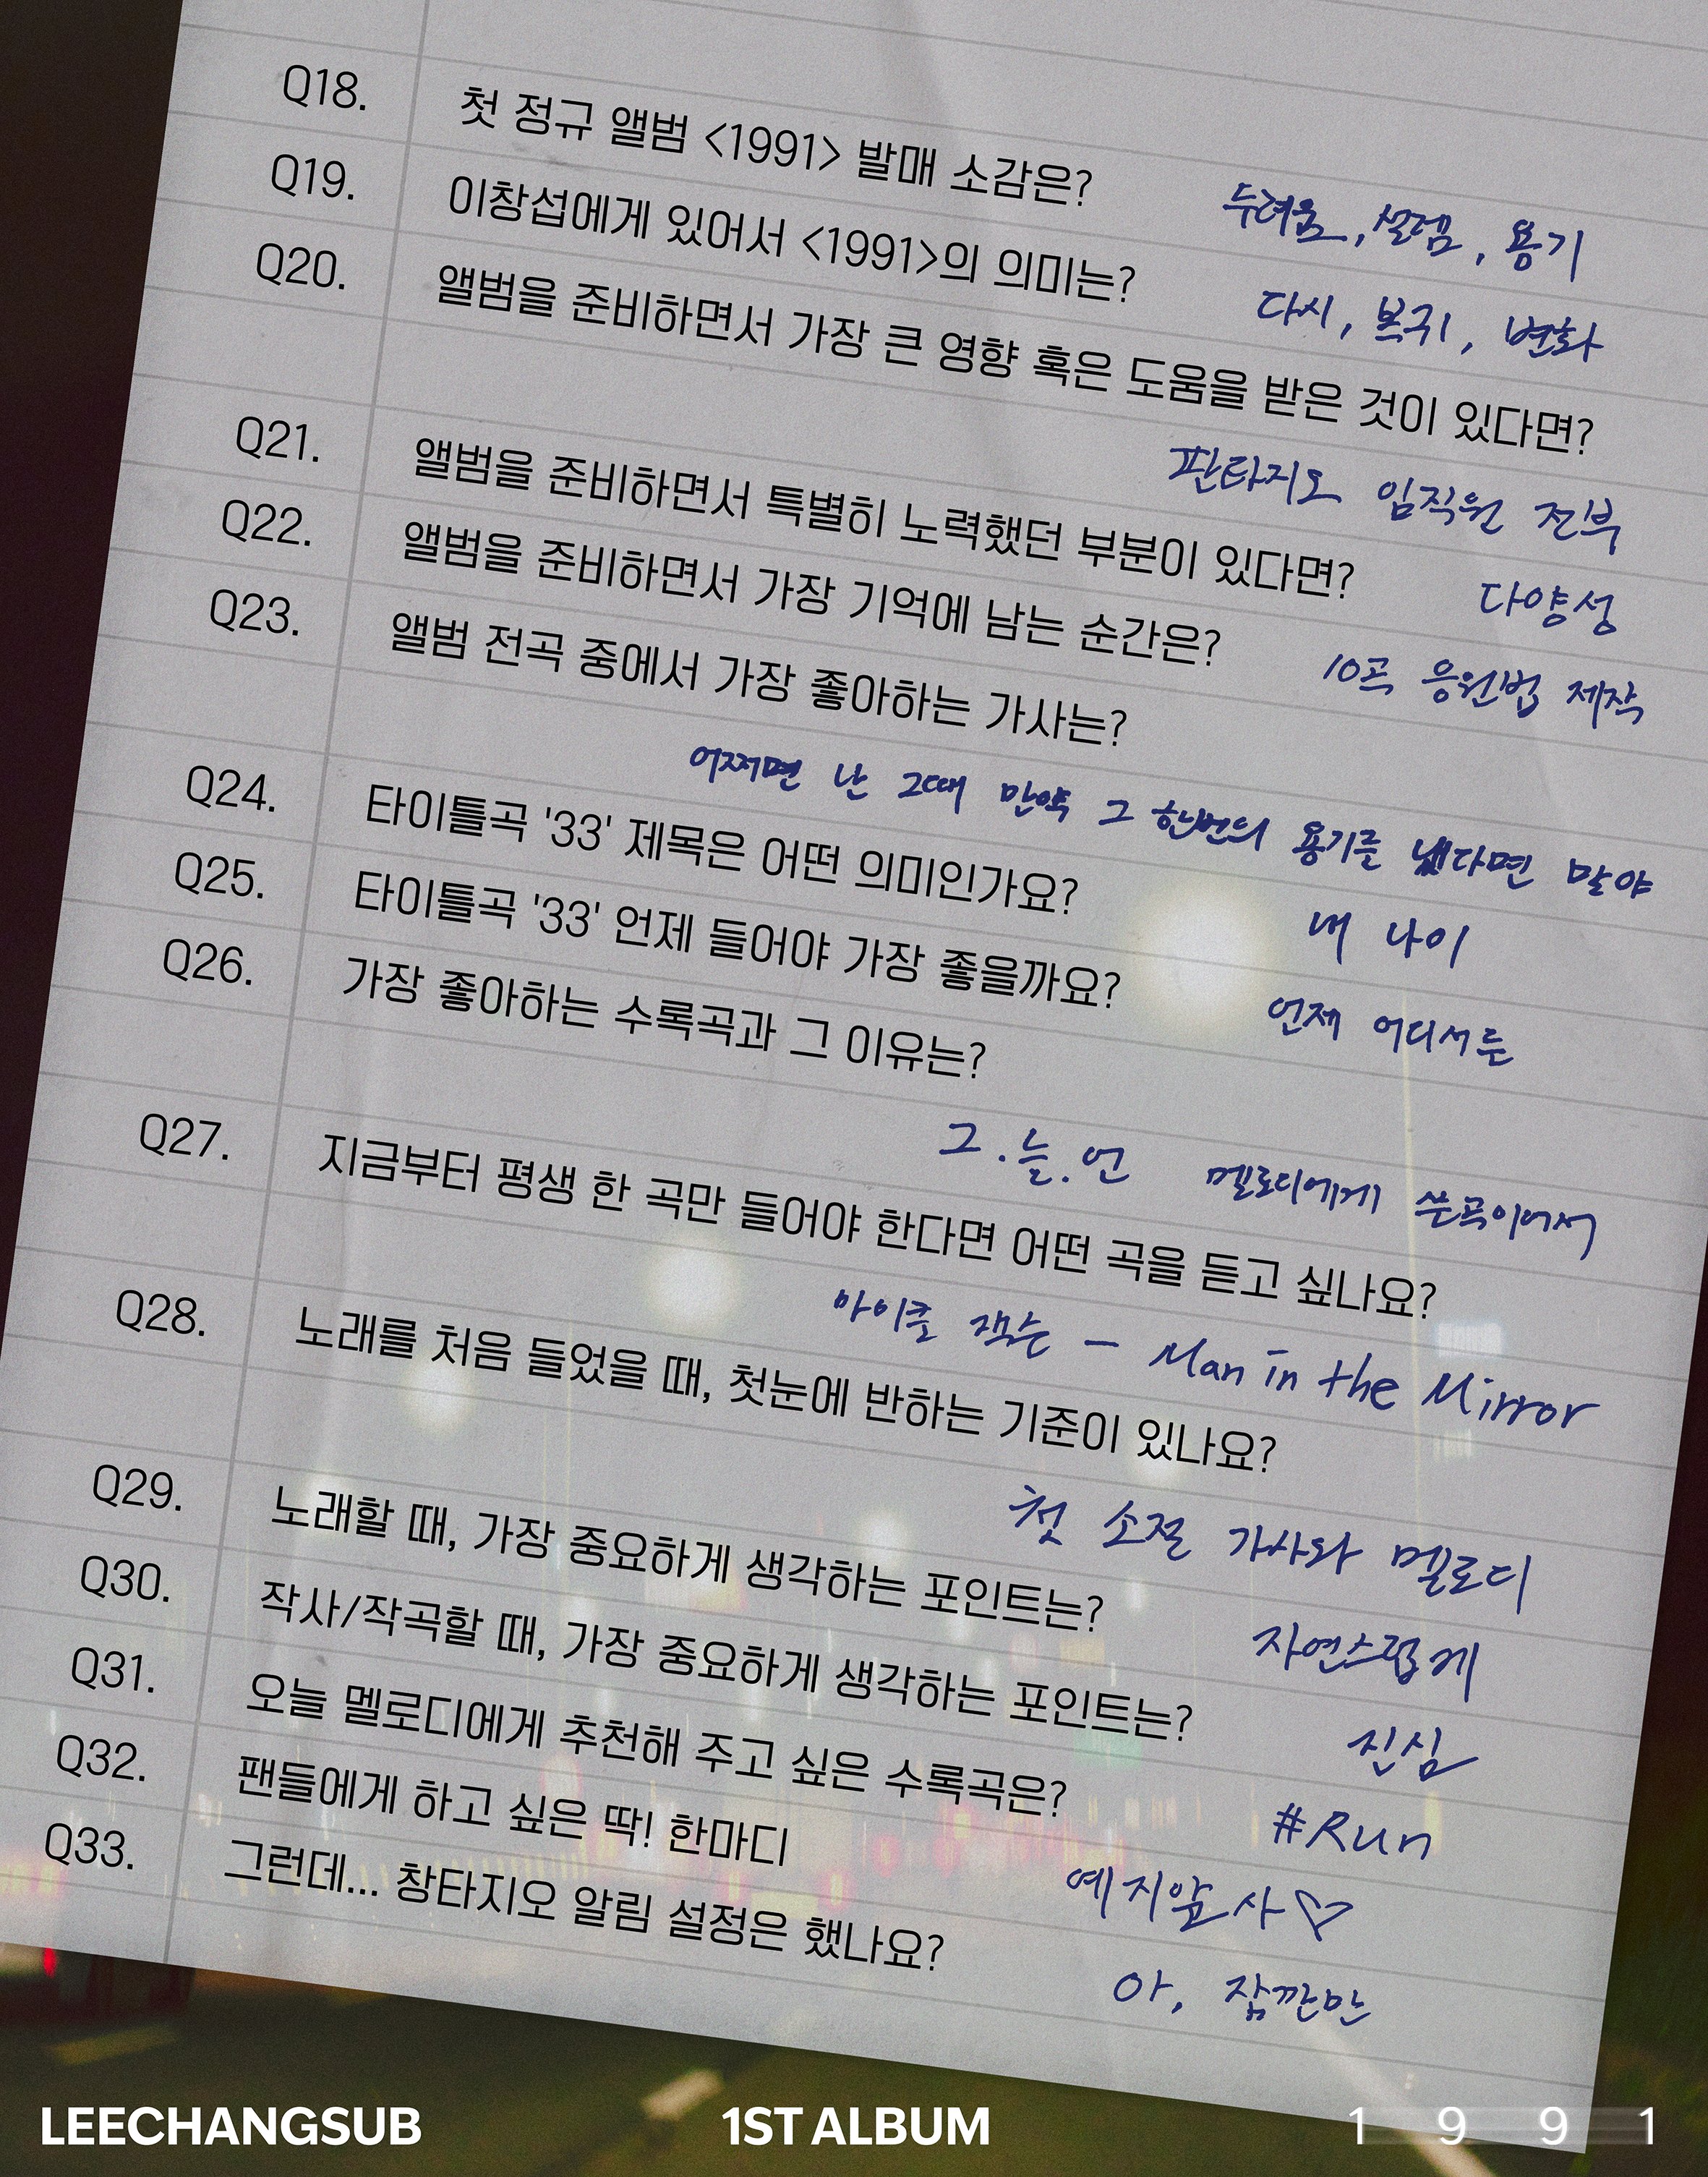 Q18. 첫 정규 앨범 <1991> 발매 소감은?
두려움, 설렘, 용기
Q19. 이창섭에게 있어서 <1991>의 의미는?
다시, 복귀, 변화
Q20. 앨범을 준비하면서 가장 큰 영향 혹은 도움을 받은 것이 있다면?
판타지오 임직원 전부
Q21. 앨범을 준비하면서 특별히 노력했던 부분이 있다면?
다양성
Q22. 앨범을 준비하면서 가장 기억에 남는 순간은?
10곡 응원법 제작
Q23. 앨범 전곡 중에서 가장 좋아하는 가사는?
어쩌면 난 그때 만약 그 한번의 용기를 냈다면 말야
Q24. 타이틀곡 '33' 제목은 어떤 의미인가요?
내 나이
Q25. 타이틀곡 '33' 언제 들어야 가장 좋을까요?
언제 어디서든
Q26. 가장 좋아하는 수록곡과 그 이유는?
그.늘.언 멜로디에게 쓴곡이어서
Q27. 지금부터 평생 한 곡만 들어야 한다면 어떤 곡을 듣고 싶나요?
마이클 잭슨 - Man in the Mirror
Q28. 노래를 처음 들었을 때, 첫눈에 반하는 기준이 있나요?
첫 소절 가사와 멜로디
Q29. 노래할 때, 가장 중요하게 생각하는 포인트는?
자연스럽게
Q30. 작사/작곡할 때, 가장 중요하게 생각하는 포인트는?
진심
Q31. 오늘 멜로디에게 추천해 주고 싶은 수록곡은?
#Run
Q32. 팬들에게 하고 싶은 딱! 한마디
예지앞사♡
Q33. 그런데... 창타지오 알림 설정은 했나요?
아, 잠깐만
LEECHANGSUB 1ST ALBUM 1991